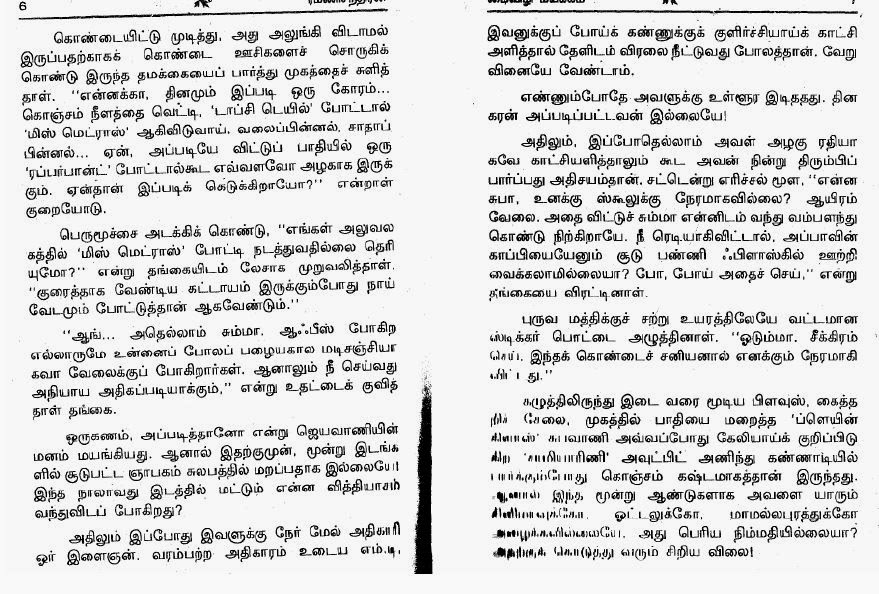 6
கொண்டையிட்டு முடித்து, அது அலுங்கி விடாமல்
இருப்பதற்காகக் கொண்டை ஊசிகளைச் சொருகிக்
கொண்டு இருந்த தமக்கையைப் பார்த்து முகத்தைச் சுளித்
தாள். ‘‘என்னக்கா, தினமும் இப்படி ஒரு கோரம்...
கொஞ்சம் நீளத்தை வெட்டி, ‘டாப்சி டெயில்’ போட்டால்
‘மிஸ் மெட்ராஸ்’ ஆகிவிடுவாய். வலைப்பின்னல், சாதாப்
பின்னல்... ஏன், அப்படியே விட்டுப் பாதியில் ஒரு
‘ரப்பர்பாண்ட்’ போட்டால்கூட எவ்வளவோ அழகாக இருக்
கும். ஏன்தான் இப்படிக் கெடுக்கிறாயோ?’’ என்றாள்
குறையோடு.
பெருமூச்சை அடக்கிக் கொண்டு, ‘‘எங்கள் அலுவல
கத்தில் ‘மிஸ் மெட்ராஸ்’ போட்டி நடத்துவதில்லை தெரி
யுமோ?’’ என்று தங்கையிடம் லேசாக முறுவலித்தாள்.
‘‘குரைத்தாக வேண்டிய கட்டாயம் இருக்கும்போது நாய்
வேடமும் போட்டுத்தான் ஆகவேண்டும்.’’
‘‘ஆங்... அதெல்லாம் சும்மா. ஆஃபீஸ் போகிற
எல்லாருமே உன்னைப் போலப் பழையகால மடிசஞ்சியா
கவா வேலைக்குப் போகிறார்கள். ஆனாலும் நீ செய்வது
அநியாய அதிகப்படியாக்கும்,’’ என்று உதட்டைக் குவித்
தாள் தங்கை.
ஒருகணம், அப்படித்தானோ என்று ஜெயவாணியின்
மனம் மயங்கியது. ஆனால் இதற்குமுன், மூன்று இடங்க
ளில் சூடுபட்ட ஞாபகம் சுலபத்தில் மறப்பதாக இல்லையே!
இந்த நாலாவது இடத்தில் மட்டும் என்ன வித்தியாசம்
வந்துவிடப் போகிறது?
அதிலும் இப்போது இவளுக்கு நேர் மேல் அதிகாரி
ஓர் இளைஞன். வரம்பற்ற அதிகாரம் உடைய எம்.டி,
இவனுக்குப் போய்க் கண்ணுக்குக் குளிர்ச்சியாய்க் காட்சி
அளித்தால் தேளிடம் விரலை நீட்டுவது போலத்தான். வேறு
வினையே வேண்டாம்.
எண்ணும்போதே அவளுக்கு உள்ளூர இடித்தது. தின
கரன் அப்படிப்பட்டவன் இல்லையே!
அதிலும், இப்போதெல்லாம் அவள் அழகு ரதியா
கவே காட்சியளித்தாலும் கூட அவன் நின்று திரும்பிப்
பார்ப்பது அதிசயம்தான். சட்டென்று எரிச்சல் மூள, ‘‘என்ன
சுபா, உனக்கு ஸ்கூலுக்கு நேரமாகவில்லை? ஆயிரம்
வேலை. அதை விட்டுச் சும்மா என்னிடம் வந்து வம்பளந்து
கொண்டு நிற்கிறாயே. நீ ரெடியாகிவிட்டால், அப்பாவின்
காப்பியையேனும் சூடு பண்ணி ஃபிளாஸ்கில் ஊற்றி
வைக்கலாமில்லையா? போ, போய் அதைச் செய்,’’ என்று
தங்கையை விரட்டினாள்.
புருவ மத்திக்குச் சற்று உயரத்திலேயே வட்டமான
ஸ்டிக்கர் பொட்டை அழுத்தினாள். ‘‘ஓடும்மா. சீக்கிரம்
செய். இந்தக் கொண்டைச் சனியனால் எனக்கும் நேரமாகி
விட்டது.’’
கழுத்திலிருந்து இடை வரை மூடிய பிளவுஸ், கைத்த
றிச் சேலை, முகத்தில் பாதியை மறைத்த ‘ப்ளெயின்
கிளாஸ்’ சுபவாணி அவ்வப்போது கேலியாய்க் குறிப்பிடு
கிற ‘சாமியாரிணி’ அவுட்பிட் அணிந்து கண்ணாடியில்
பார்க்கும்போது கொஞ்சம் கஷ்டமாகத்தான் இருந்தது.
ஆனால் இந்த மூன்று ஆண்டுகளாக அவளை யாரும்
சினிமாவுக்கோ, ஓட்டலுக்கோ, மாமல்லபுரத்துக்கோ
அழைக்கவில்லையே. அது பெரிய நிம்மதியில்லையா?
அதற்குக் கொடுத்து வரும் சிறிய விலை!